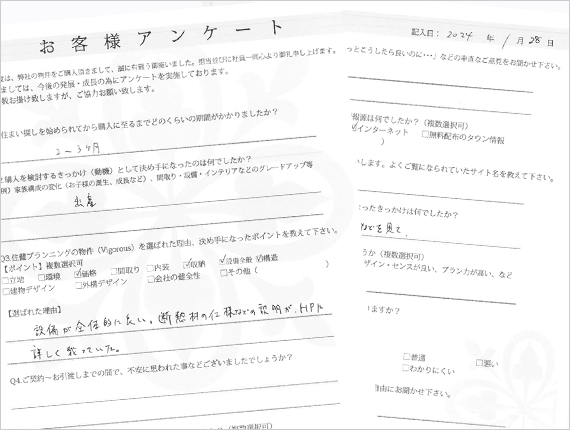 お客様アンケート
度は、弊社の物件をご購入頂きまして、誠に有難う御座いました。担当並びに社員一同心より御礼申し上げます。
ましては、今後の発展・成長の為にアンケートを実施しております。
数お掛け致しますが、ご協力お願い致します。
住まい探しを始められてから購入に至るまでどのくらいの期間がかかりましたか？
2～3ヶ月
購入を検討するきっかけ（動機）として決め手になったのは何でしたか？
例）家族構成の変化（お子様の誕生、成長など）、間取り・設備・インテリアなどのグレードアップ等
出産
Q3.住建プランニングの物件（Vigorous）を選ばれた理由、決め手になったポイントを教えて下さい。
【ポイント】複数選択可
□立地 □環境 ☑価格 □間取り □内装 ☑収納 ☑設備全般 ☑構造
□建物デザイン □外構デザイン □会社の健全性 □その他（ ）
【選ばれた理由】
設備が全体的に良い。断熱材の仕様などの説明が、HPに
詳しく載っていた。
Q4.ご契約～お引渡しまでの間で、不安に思われた事などございましたでしょうか？
（複数選択可）
記入日： 2024 年 1 月 28 日
っとこうしたら良いのに・・・」などの率直なご意見をお聞かせ下さい。
報源は何でしたか？（複数選択可）
☑インターネット □無料配布のタウン情報
）
いします。よくご覧になられていたサイト名を教えて下さい。
ったきっかけは何でしたか？
などを見て、
うか（複数選択可）
ザイン・センスが良い、プラン力が高い、など
ますか？
□普通 □悪い
□わかりにくい
自由にお聞かせ下さい。